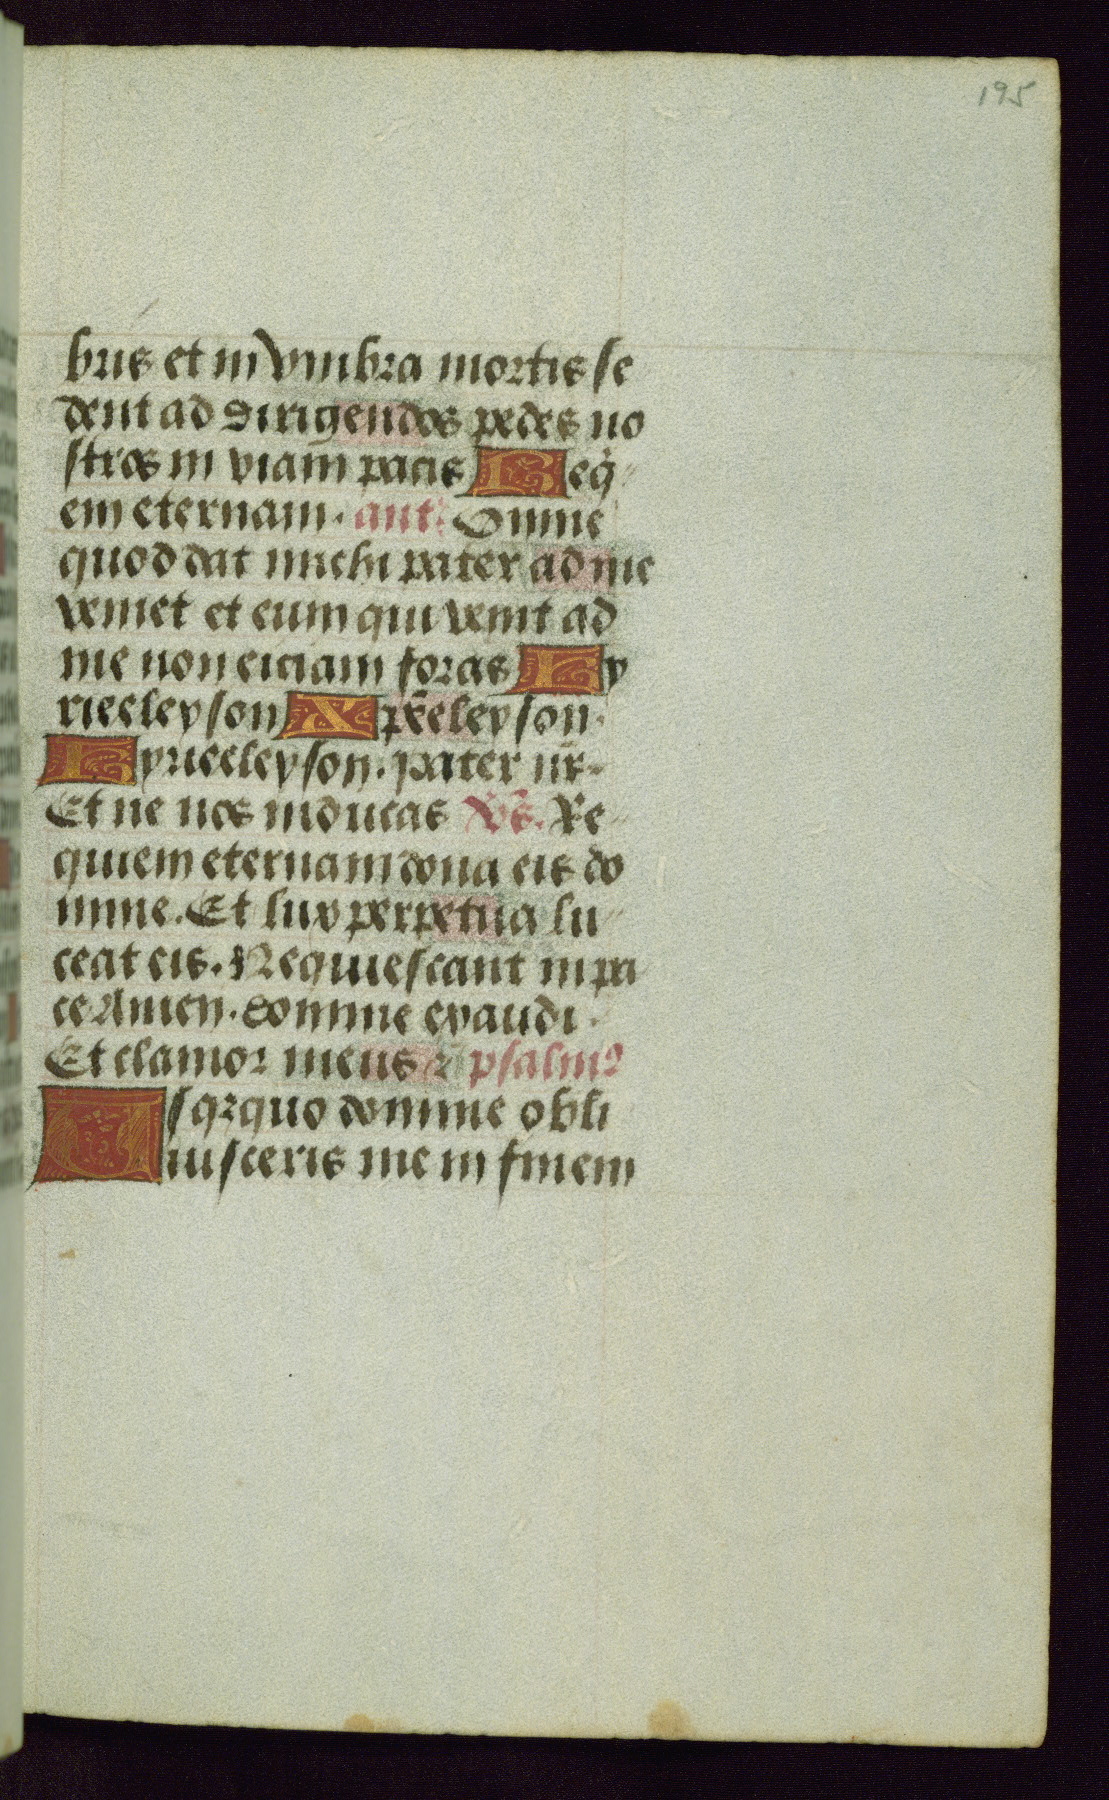 195
bris et in vmbra mortis se
dent ad dirigendos pedes no
stros in viam pacis Req̇
em eternam. ant: Omne
quod dat michi pater ad me
veniet et eum qui venit ad
me non eiciam foras Ky
rieeleyson Xp̄eeleyson.
Kyrieeleyson. pater nr̄
Et ne nos inducas Vs. Re
quiem eternam dona eis do
mine. Et lux perpetua lu
ceat eis. Requiescant in pa
ce Amen. Domine exaudi.
Et clamor meus ꝛ̄ psalmꝰ
Vsqꝛquo domine obli
uisceris me in finem